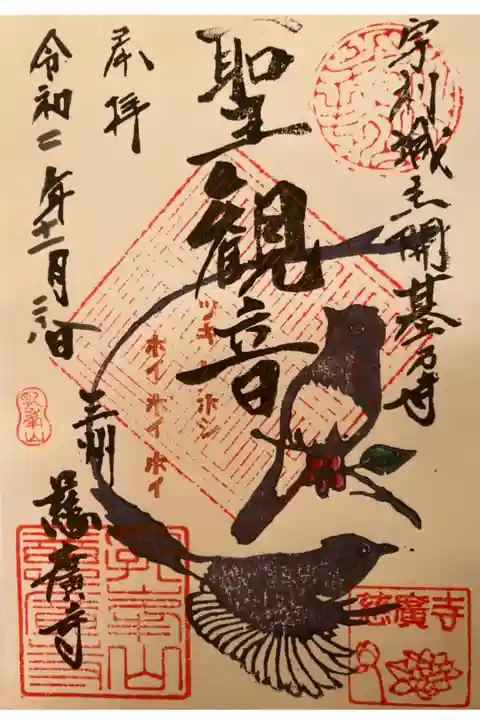 宇利城主開基乃寺
聖観音
ツキヒホシ
ホイホイホイ
奉拝
令和二年十一月
三州
慈廣寺
慈廣寺